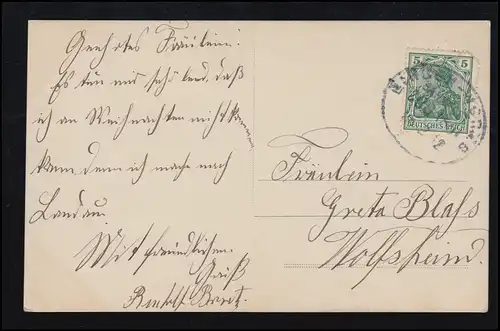 Geehrtes Fräulein!
Es tun mir sehr leid, daß
ich an Weihnachten nicht
kam, denn ich mache nach
Landau.
Mit freundlichem
Gruß
Rudolf
Fräulein
Greta Blass
Wolfsheim.
5 5
DEUTSCHES REICH